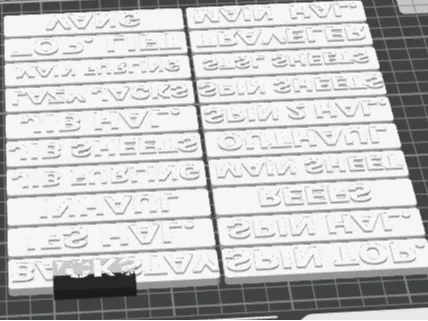 VANG
MAIN HAL.
TOP. LIFT
TRAVELER
MAIN FURLING
STSL SHEETS
LAZY JACKS
SPIN SHEETS
JIB HAL.
SPIN 2 HAL.
JIB SHEETS
OUTHAUL
JIB FURLING
MAIN SHEET
REEFS
HAL.
SPIN HAL.
BACKSTAY
SPIN TOP.